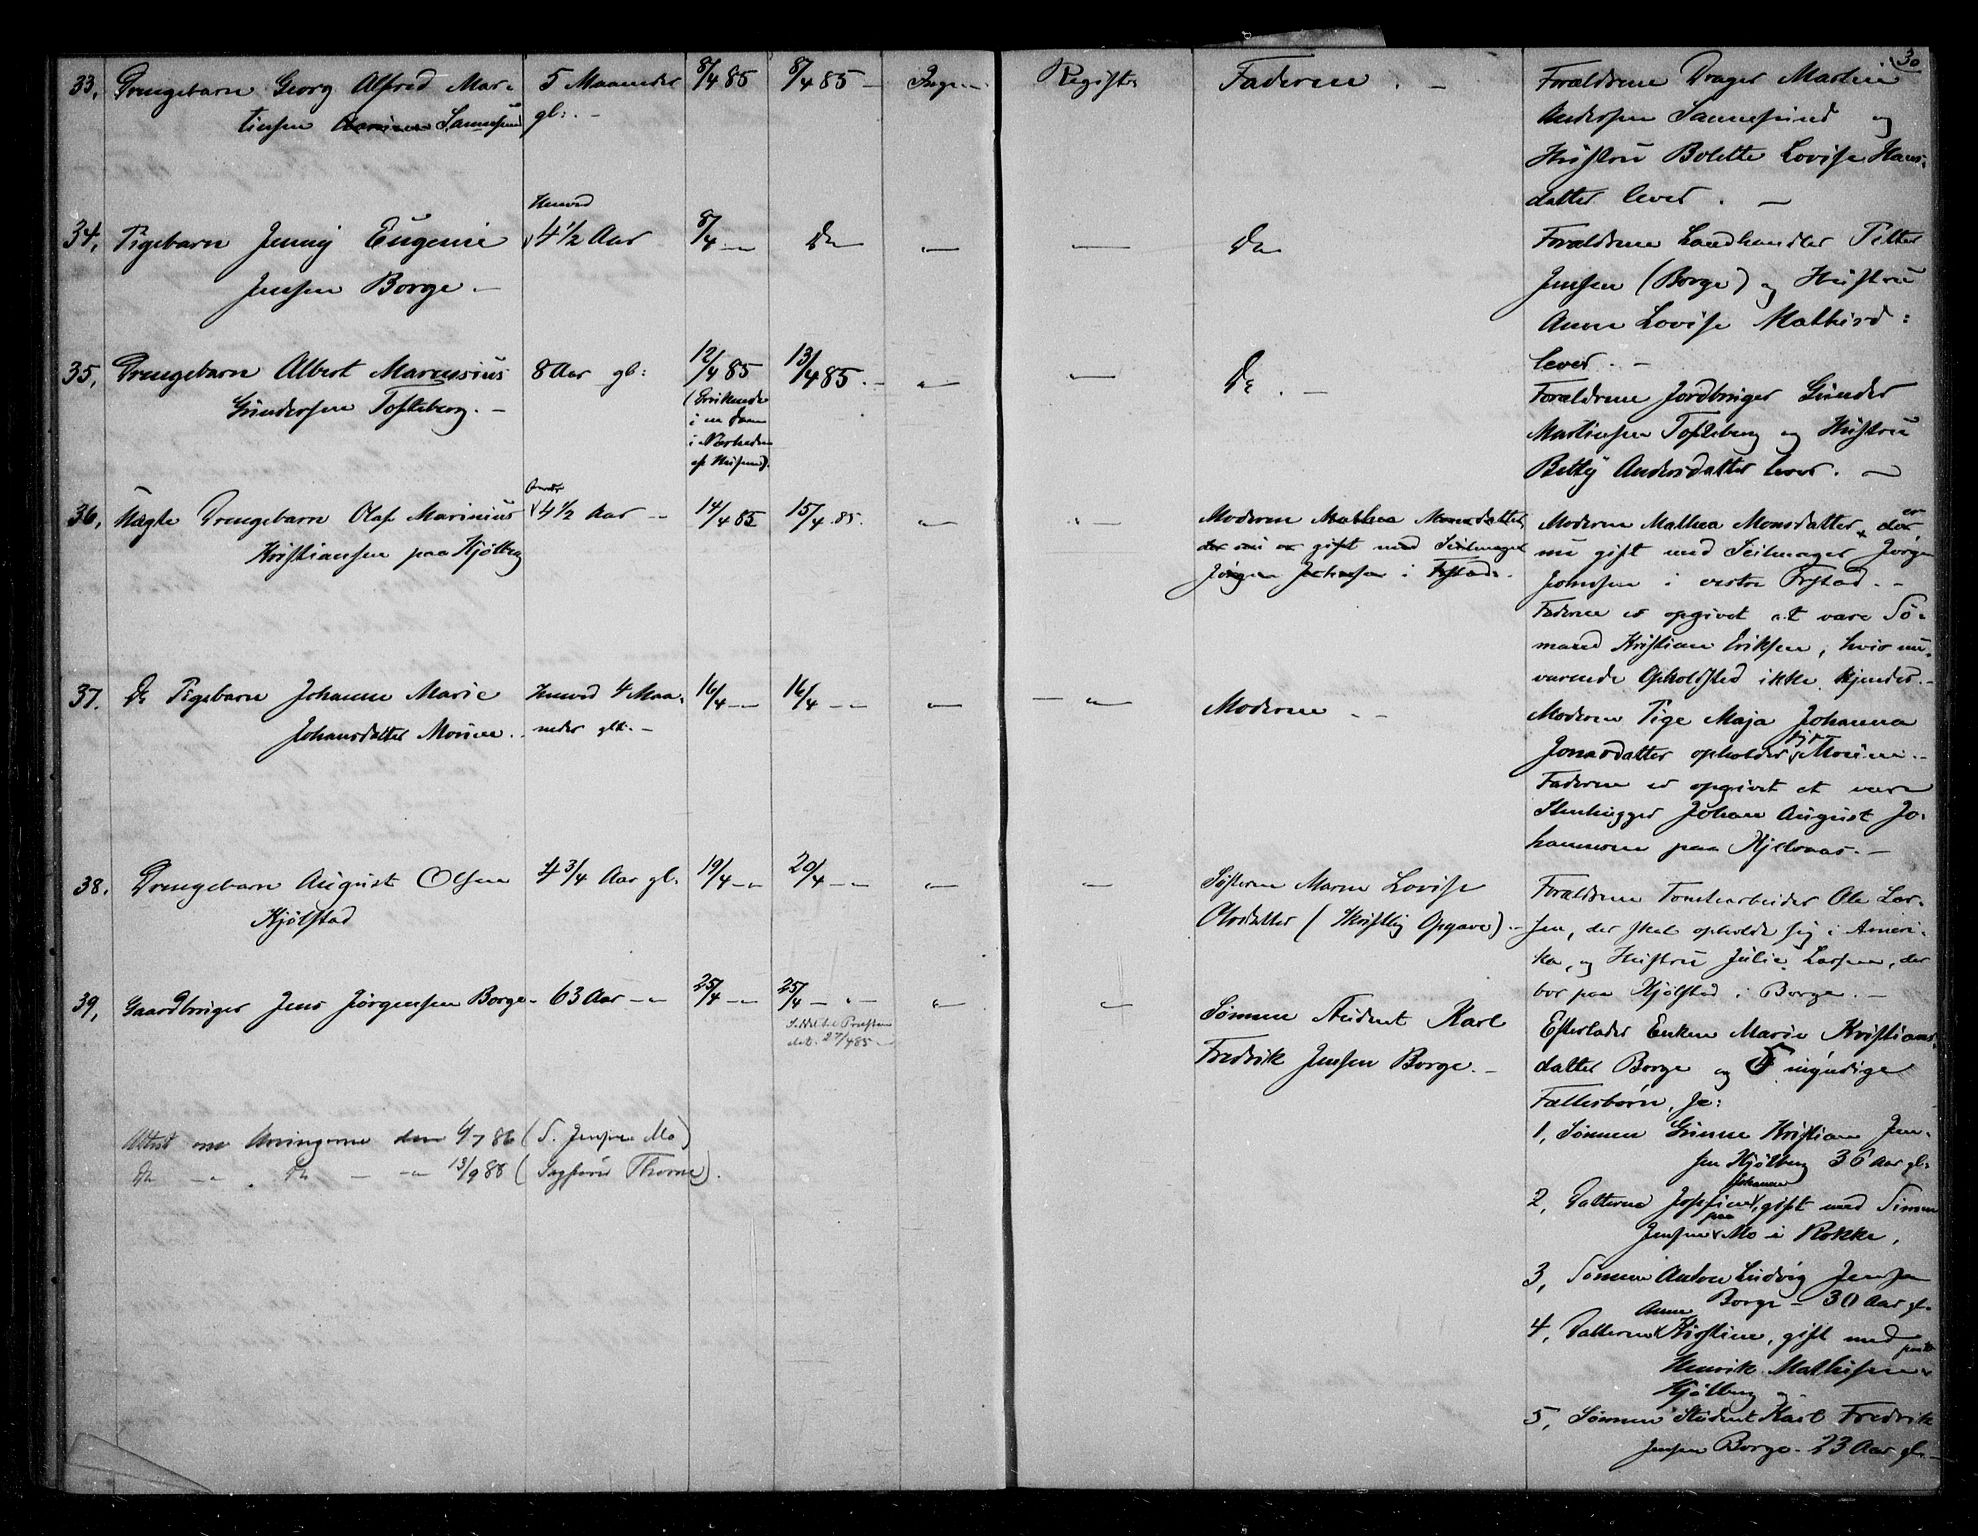 30
33, Drengebarn Georg Alfred Mar-
tinsen Sannesund
5 Maaneder
gl: -
8/4 85
8/4 85 -
Ingen
Registr
Faderen . -
Forældrene Drager Martin
Andersen Sannesund og
Hustru Bolette Lovise Hans-
datter lever . -
34, Pigebarn Jenny Eugenie
Jensen Borge -
Henved
4 1/2 Aar
8/4 - "
Do
- " -
- " -
Do
Forældrene Landhandler Petter
Jensen (Borge) og Hustru
Anne Lovise Mathisd:
lever. -
35, Drengebarn Albert Marensius
Gundersen Tofteberg. -
8 Aar gl:
12/4 85
(Druknede
i en Dam
i Nærheden
af Husene).
13/4 85. -
- " -
- " -
Do . -
Forældrene Jordbruger Gunder
Martinsen Tofteberg og Hustru
Betty Andersdatter lever. -
36, Uægte Drengebarn Olaf Marinius
Kristiansen paa Kjølberg
4 1/2 Aar -
14/4 85
15/4 85.
- " -
- " -
Moderen Mathea Monsdatter,
der nu er gift med Seilmager
Jørgen Johnsen i Frstad.
Moderen Mathea Monsdatter, der er
nu gift med Seilmager Jørgen
Johnsen i vestre Frstad. -
Faderen er opgivet at være Sø-
mand Kristian Eriksen, hvis nu-
værende Opholdsted ikke kjendes. -
37. Do Pigebarn Johanne Marie
Johansdatter Moum. -
Henved 4 Maa-
neder gl. -
16/4 - "
16/4 - "
- " -
- " -
Moderen - -
Moderen Pige Maja Johanna
Jonasdatter opholder sig paa Moum. -
Faderen er opgivet at være
Stenhugger Johan August Jo-
hannesen paa Kjelvaas. -
38. Drengebarn August Olsen
Kjølstad
4 3/4 Aar gl.
19/4 - "
20/4 - "
- " -
- " -
Søsteren Maren Lovise
Olsdatter (Skriftlig Opgave). -
Forældrene Tomtearbeider Ole Lar-
sen, der skal opholde sig i Ameri-
ka, og Hustru Julie Larsen, der
bor paa Kjølstad i Borge. -
39, Gaardbruger Jens Jørgensen Borge -
63 Aar - "
25/4 - "
25/4 - " -
Seddel til Præsten
dat. 27/4 85 -
- " -
- " -
Sønnen Student Karl
Fredrik Jensen Borge. -
Efterlader Enken Marie Kristians-
datter Borge og 5 myndige
Fællesbørn, se:
1, Sønnen Gunne Kristian Jen-
sen Kjølberg 36 Aar gl.
2, Datteren Josefine Johanne, gift med Simen
Jensen paa Mo i Rokke,
3, Sønnen Anton Ludvig Jensen
Borge - 30 Aar gl.
4, Datteren Anne Kristine, gift med
Henrik Mathisen paa
Kjølberg og
5, Sønnen Student Karl Fredrik
Jensen Borge - 23 Aar gl. -
Attest om Arvingerne den 6/7 86 (S. Jensen Mo)
Do - " - Do - - " 13/9 88 (Sagfører Thorne).